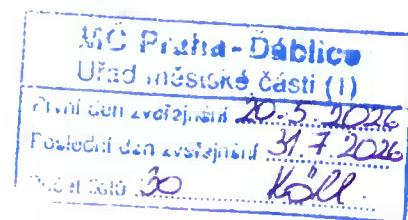 MČ Praha - Ďáblice
Úřad městské části (1)
První den zveřejnění 20.5.2026
Poslední den zveřejnění 31.7.2026
Počet listů 30